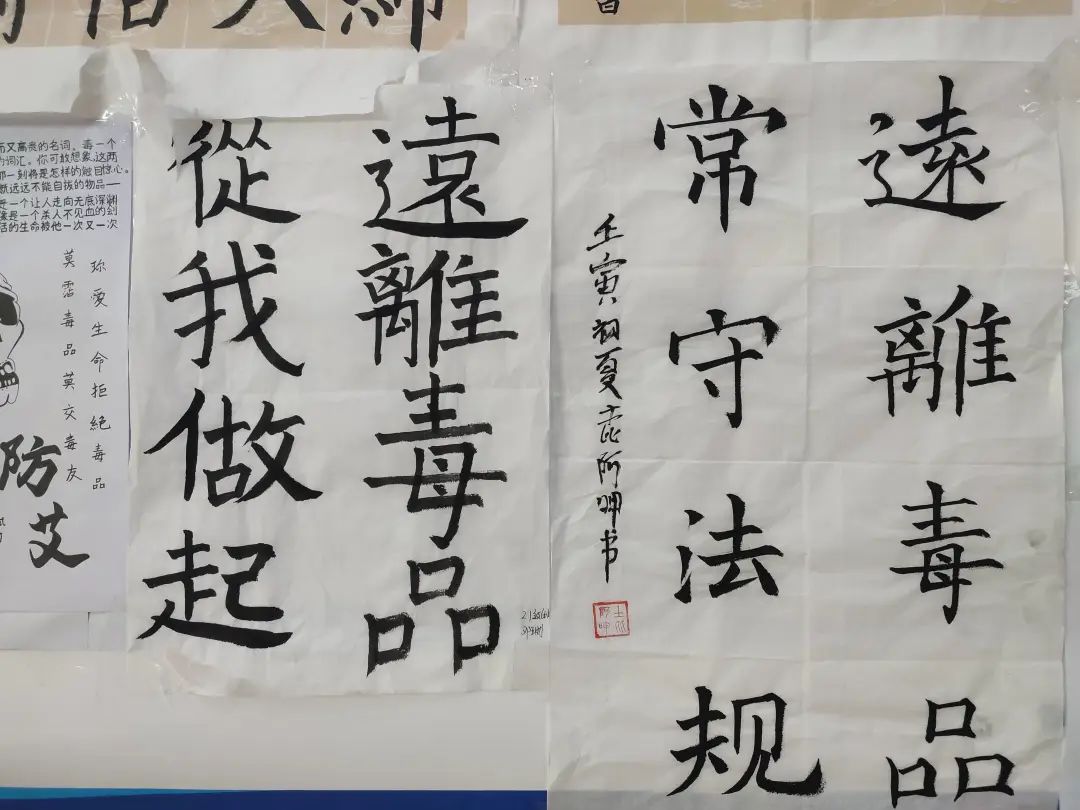 遠離毒品
常守法规
壬寅初夏土比阿呷书
土比阿呷
遠離毒品
從我做起
而又高贵的名词。毒一个
的词汇。你可敢想象,这两
那一刻将是怎样的触目惊心。
就远远不能自拔的物品一
是一个让人走向无底深渊
该是一个杀人不见血的刽
活的生命被他一次又一次
珍爱生命拒絕毒品
莫霑毒品莫交毒友
防艾